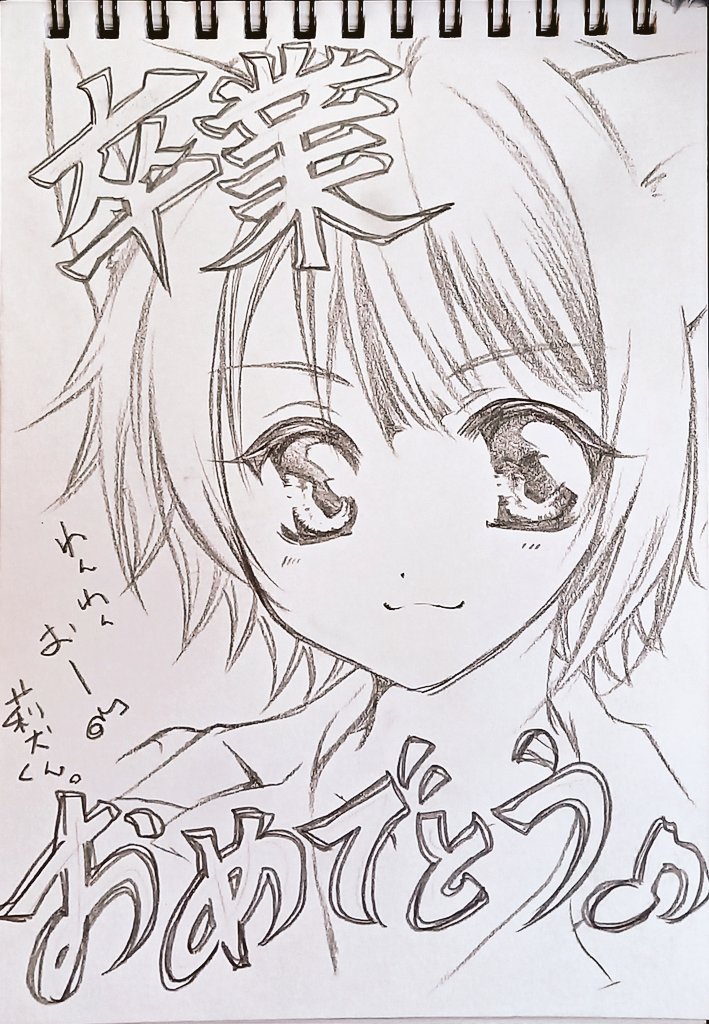 卒業
わんわん
おーっ
莉犬
くん。
おめでとう♪